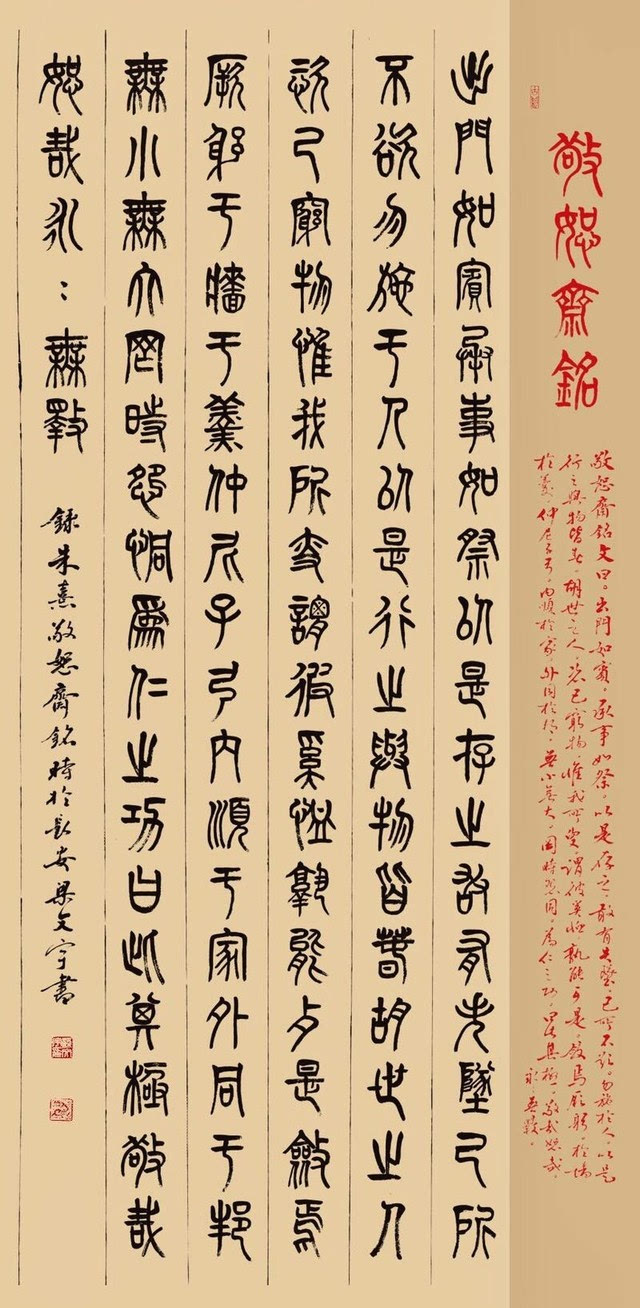 敬恕齋銘
敬恕齋銘文曰。出門如賓，承事如祭，以是存之，敢有失墜，己所不欲。勿施於人，以是
行之與物皆春。胡世之人，恣己窮物，惟我所，謂彼奚恤，孰能是，斂焉厥躬，於墻
於羹，仲尼子弓。內順於家，外同於邦，無小無大，罔時怨恫，為仁之功，曰此其極，敬哉恕哉，
永：無斁。
出門如賓承事如祭以是存之敢有失墜己所
不欲勿施于人以是行之與物皆春故世之人
恣己窮物惟我所謂彼奚恤孰能是斂焉
厥躬于牆于羹仲尼子弓內順于家外同于邦
無小無大罔時怨恫為仁之功曰此其極敬哉
恕哉永：無斁
錄朱熹敬恕齋銘時於長安梁文宇書